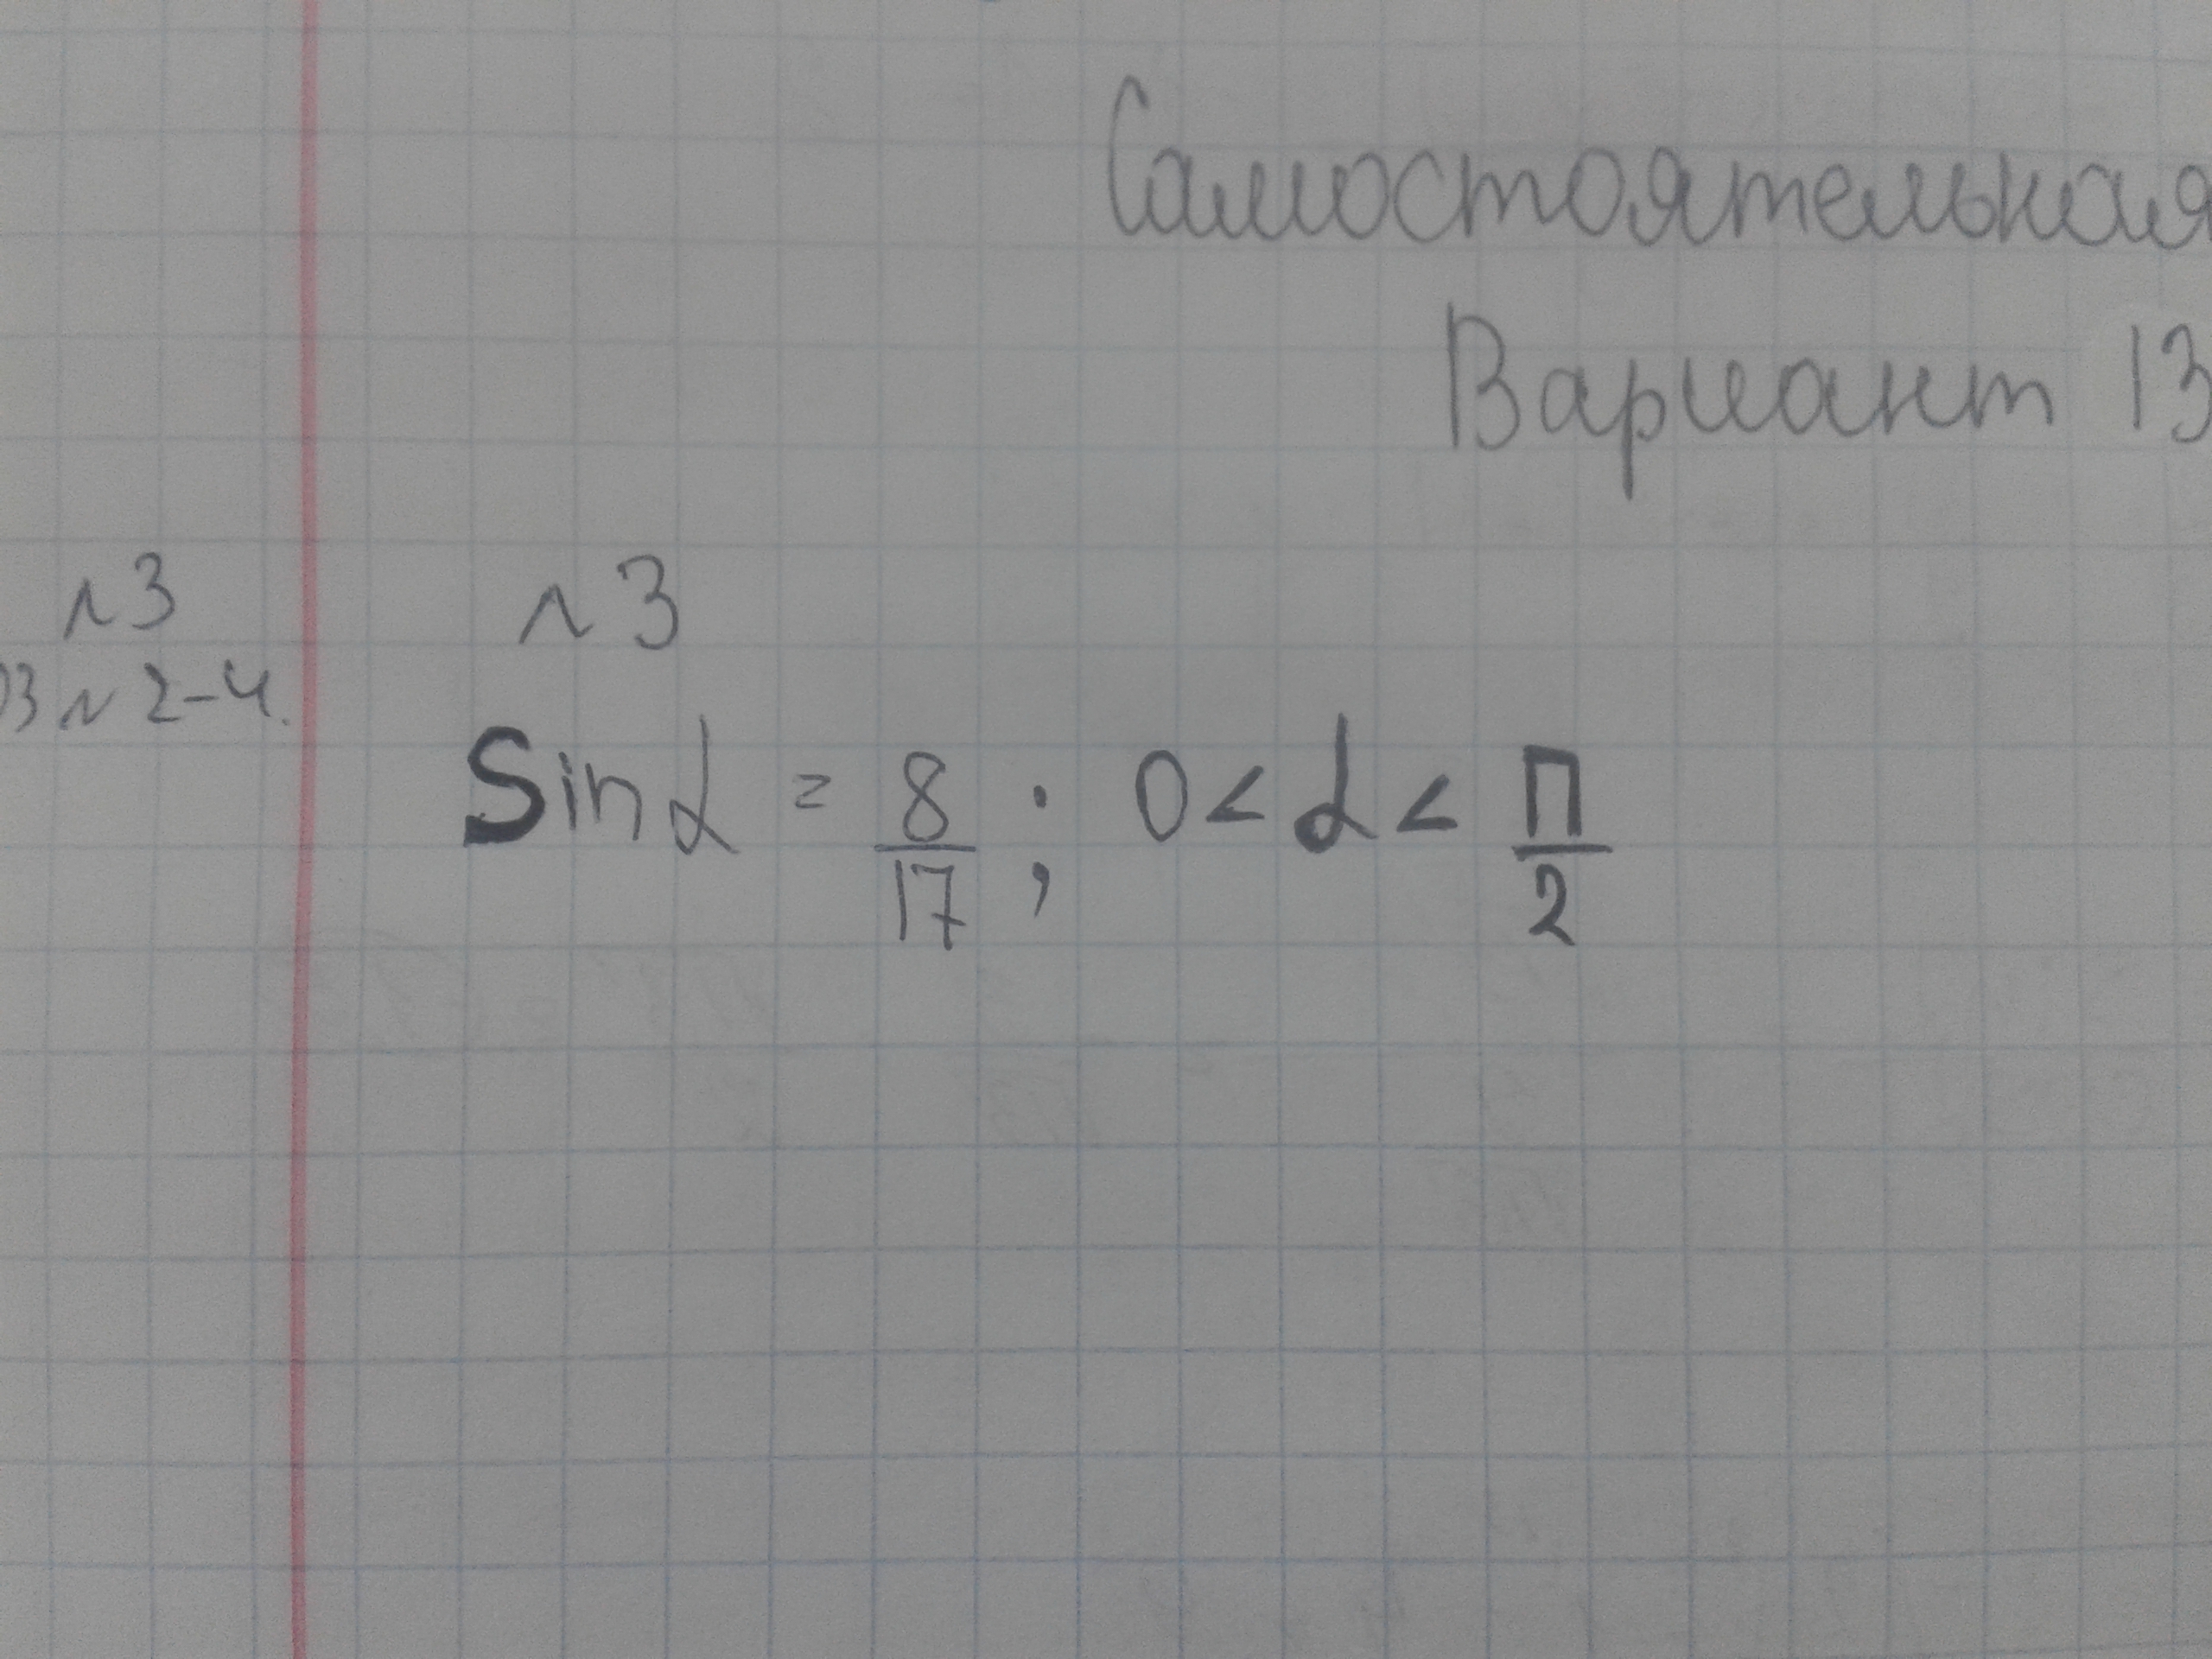 Самостоятельная
Вариант 13
№3
№3
03 № 2-4.
Sin α = 8/17 ; 0 < α < П/2